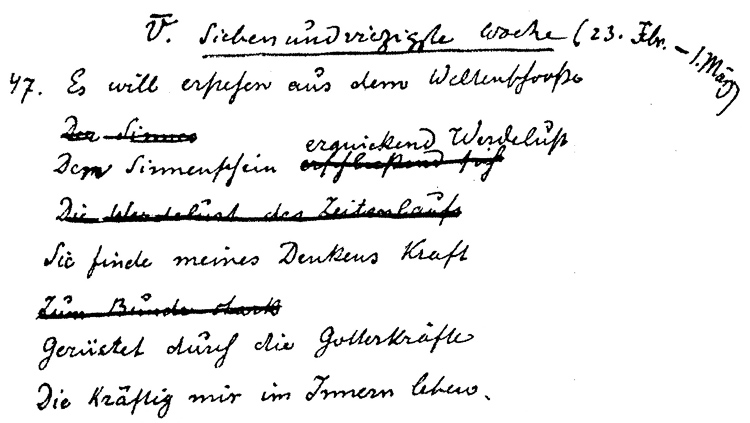 V. Siebenundvierzigste Woche (23. Febr. – 1. März)
47. Es will erstehen aus dem Weltenschooße
Der Sinnes
erquickend Werdelust
Den Sinnenschein erschließend sich
Die Werdelust des Zeitenlaufs
Sie finde meines Denkens Kraft
Zum Bunde stark
Gerüstet durch die Gotteskräfte
Die kräftig mir im Innern leben.